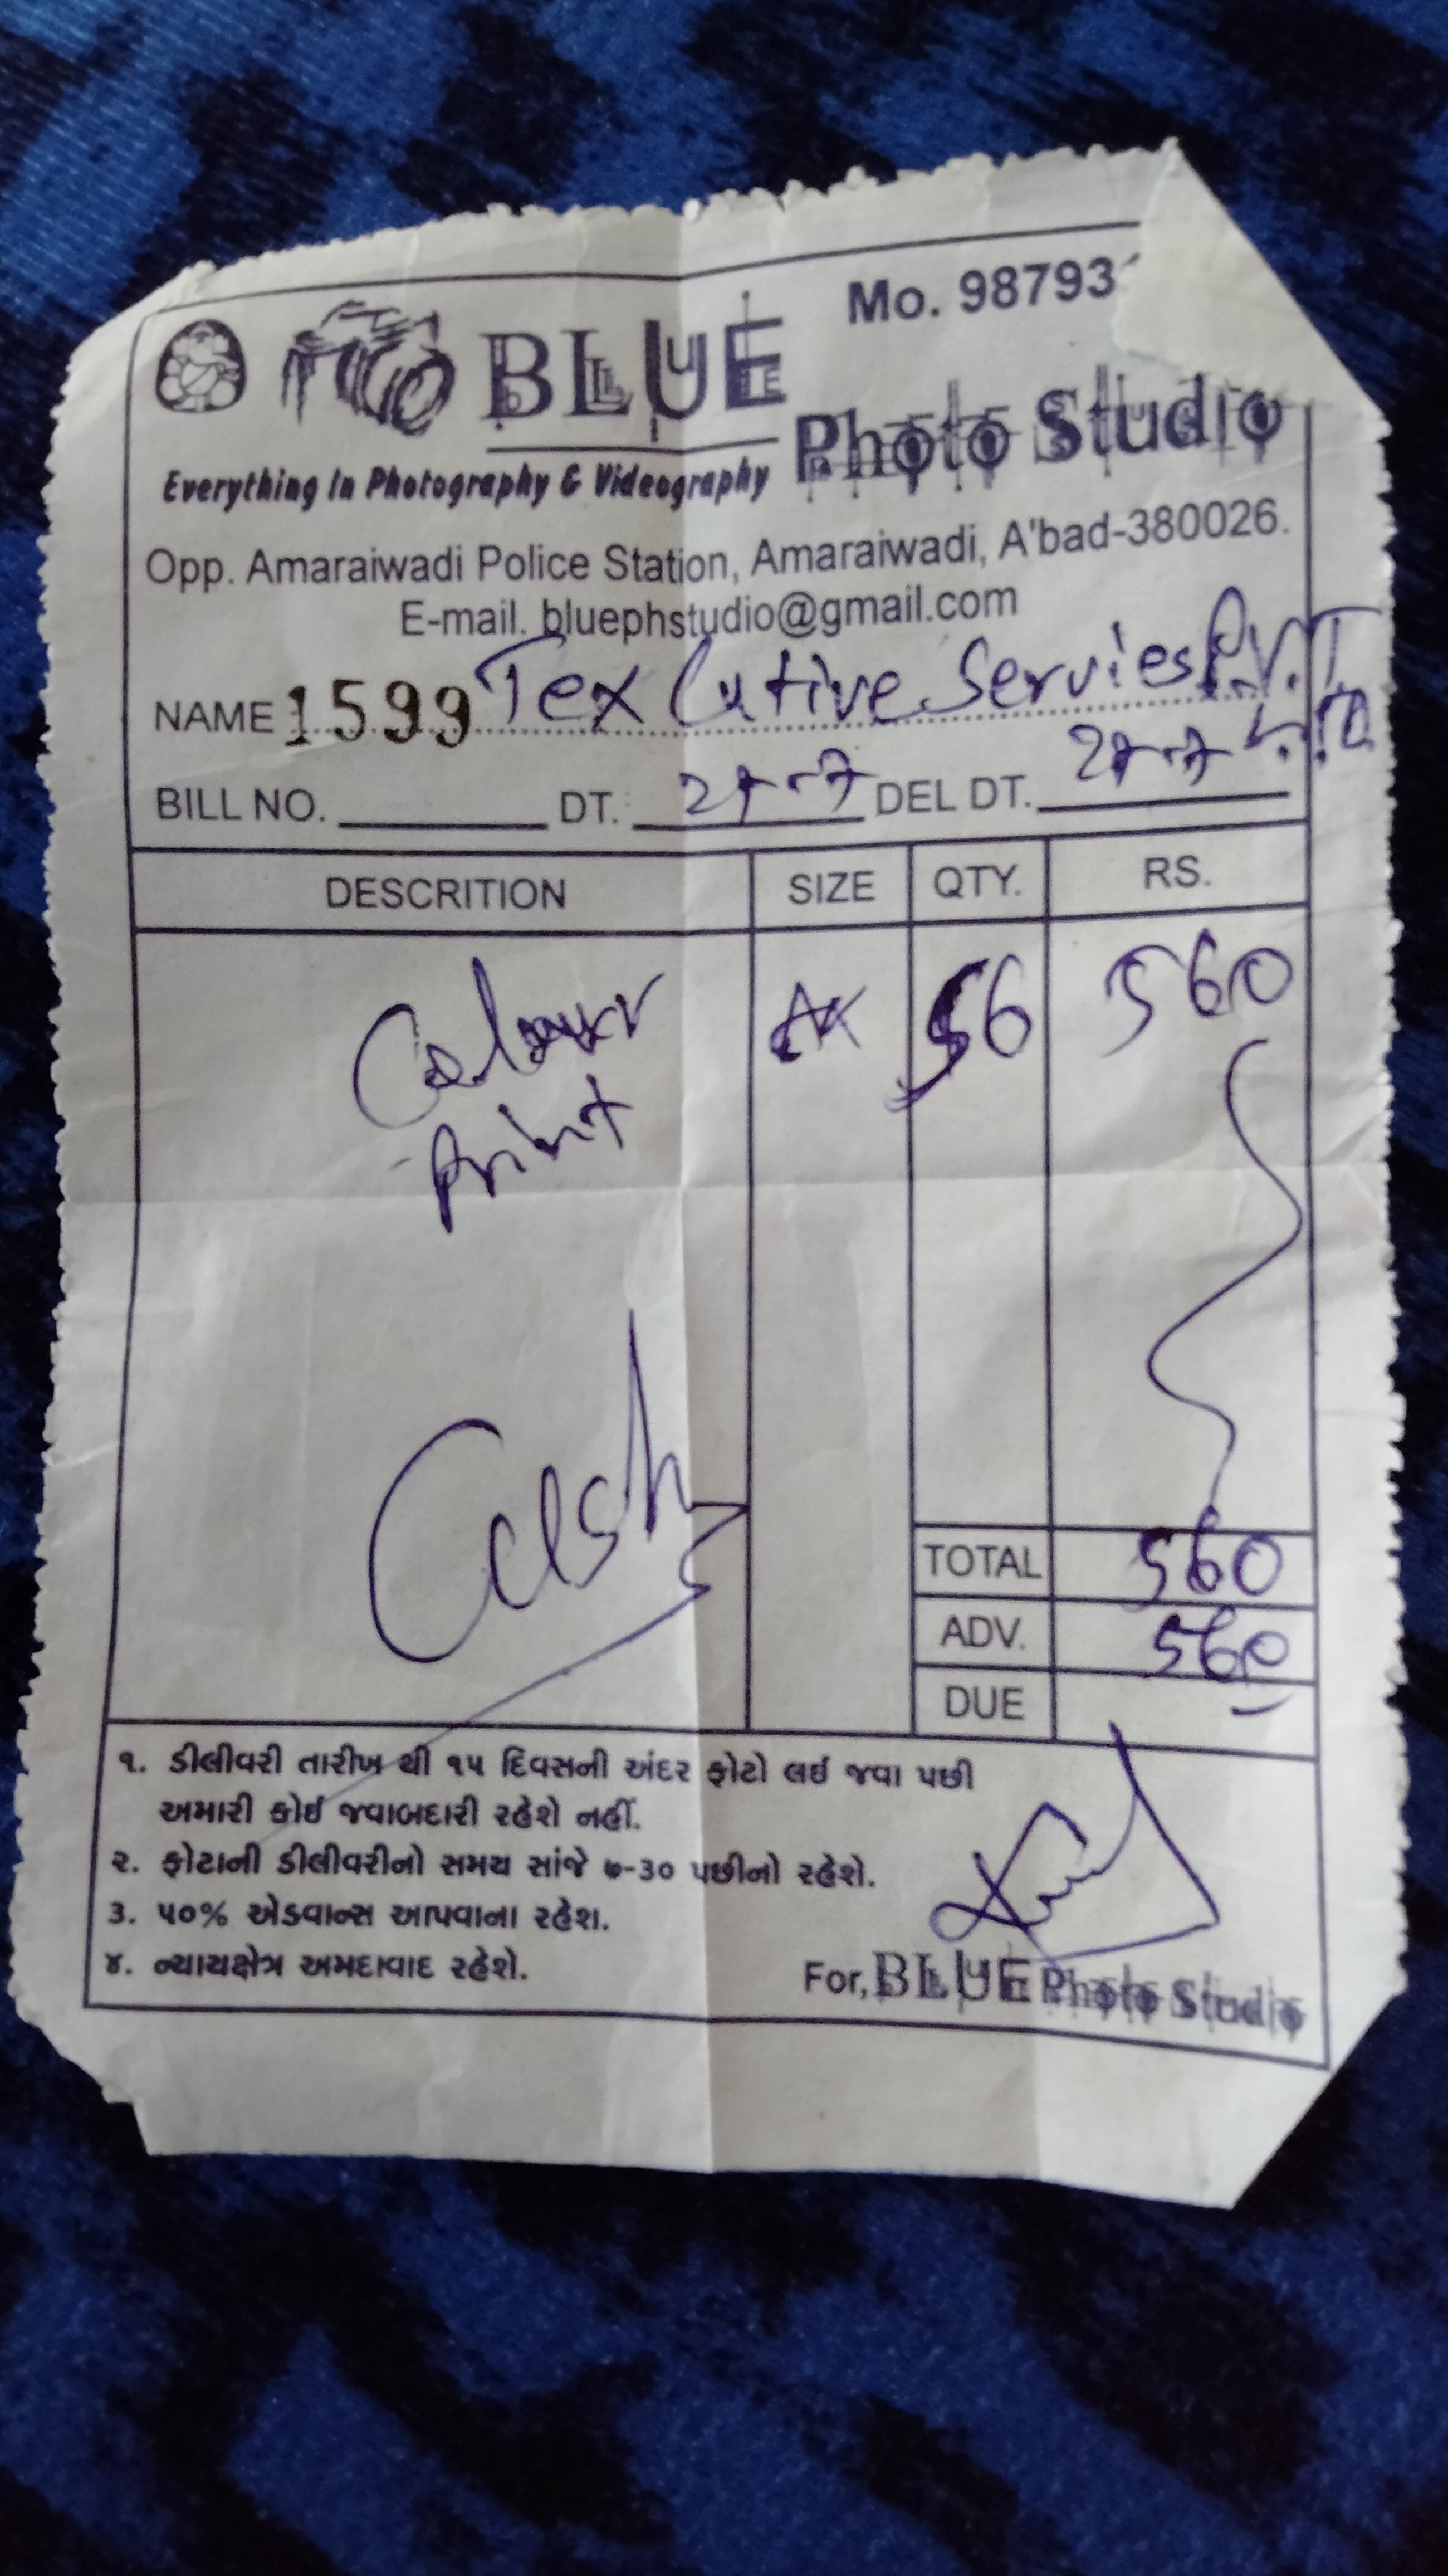 Mo. 98793
BLUE
Photo Studio
Everything In Photography & Videography
Opp. Amaraiwadi Police Station, Amaraiwadi, A'bad-380026.
E-mail. bluephstudio@gmail.com
NAME 1599 Tex Cutive Servies P.V.T
L.T.D.
BILL NO. DT. DEL DT.
DESCRITION SIZE QTY. RS.
Colour 56 560
Print
Cash
TOTAL 560
ADV. 560
DUE
૧. ડીલીવરી તારીખ થી ૧૫ દિવસની અંદર ફોટો લઇ જવા પછી
અમારી કોઇ જવાબદારી રહેશે નહીં.
૨. ફોટાની ડીલીવરીનો સમય સાંજે ૭-૩૦ પછીનો રહેશે.
૩. ૫૦% એડવાન્સ આપવાના રહેશ.
૪. ન્યાયક્ષેત્ર અમદાવાદ રહેશે.
For, BLUE Photo Studio